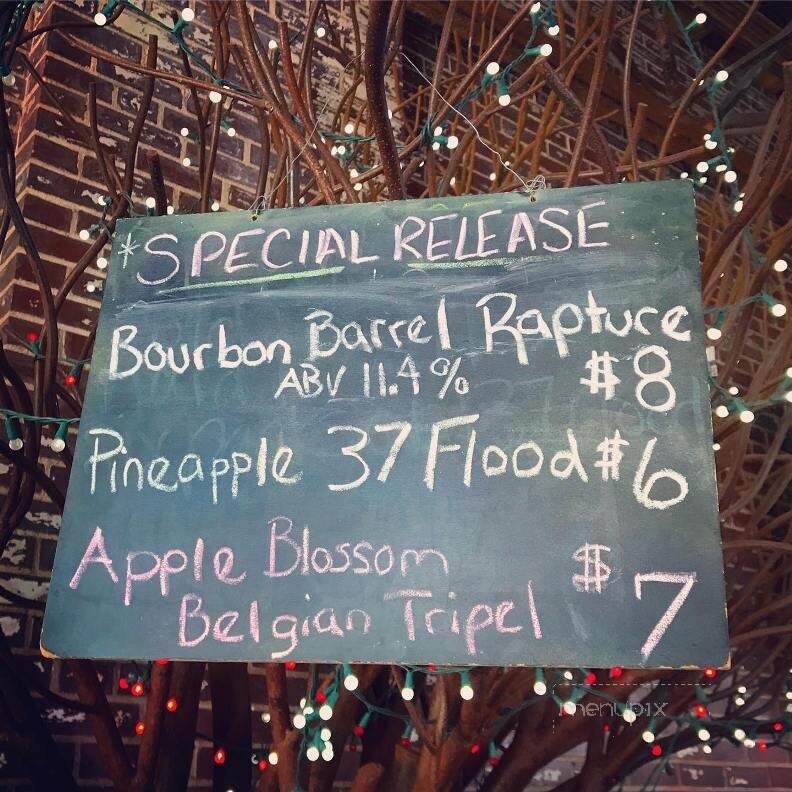 *SPECIAL RELEASE
Bourbon Barrel Rapture
ABV 11.4% $8
Pineapple 37 Flood $6
Apple Blossom
Belgian Tripel $7
menupix